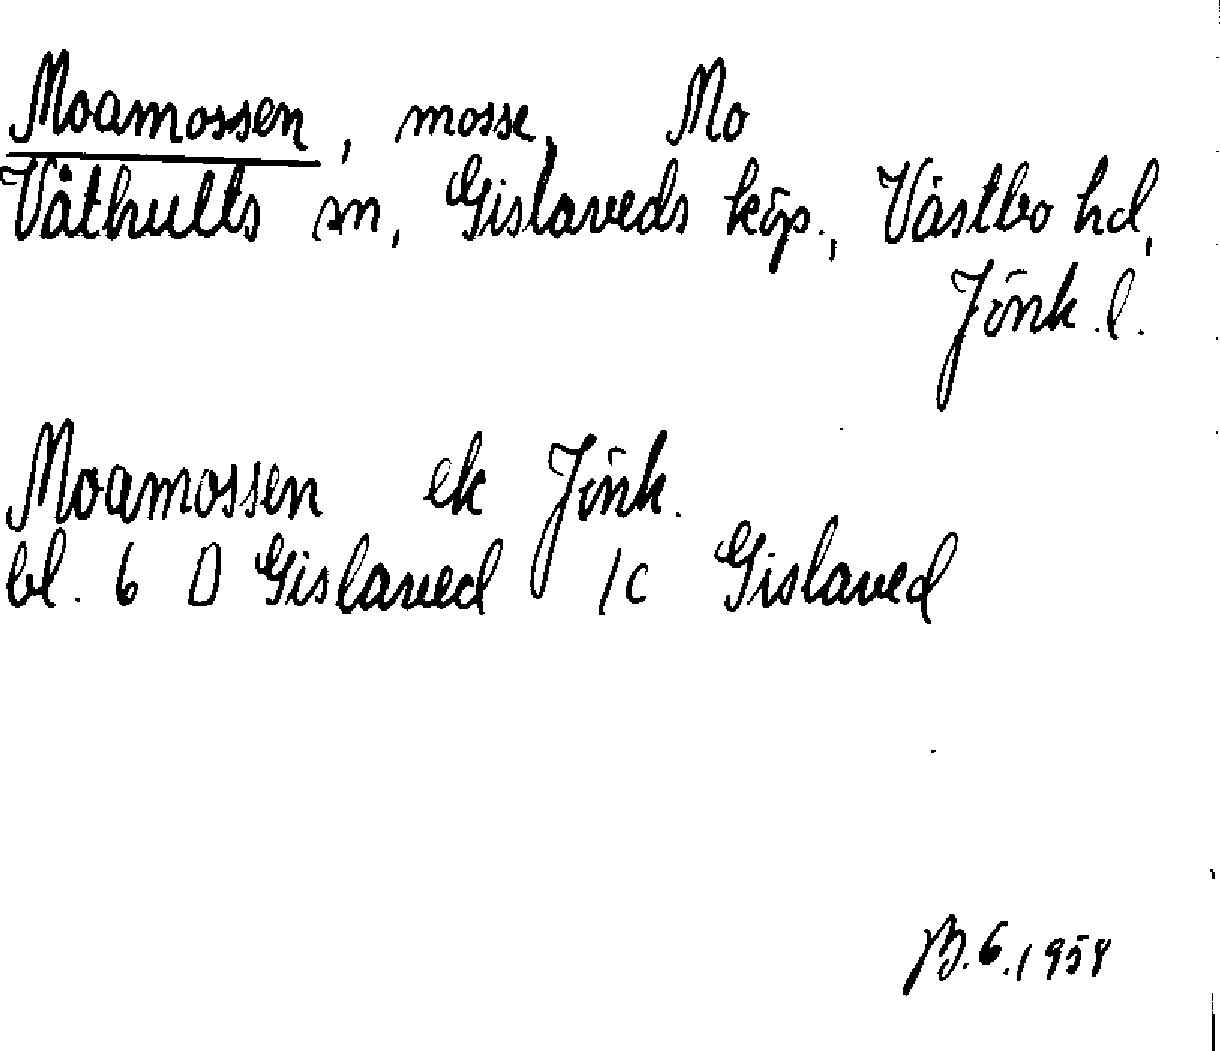 Moamossen, mosse, Mo
Våthults sn, Gislaveds köp., Västbo hd,
Jönk. l.
Moamossen ek Jönk.
bl. 6 D Gislaved 1c Gislaved
B. 6. 1958